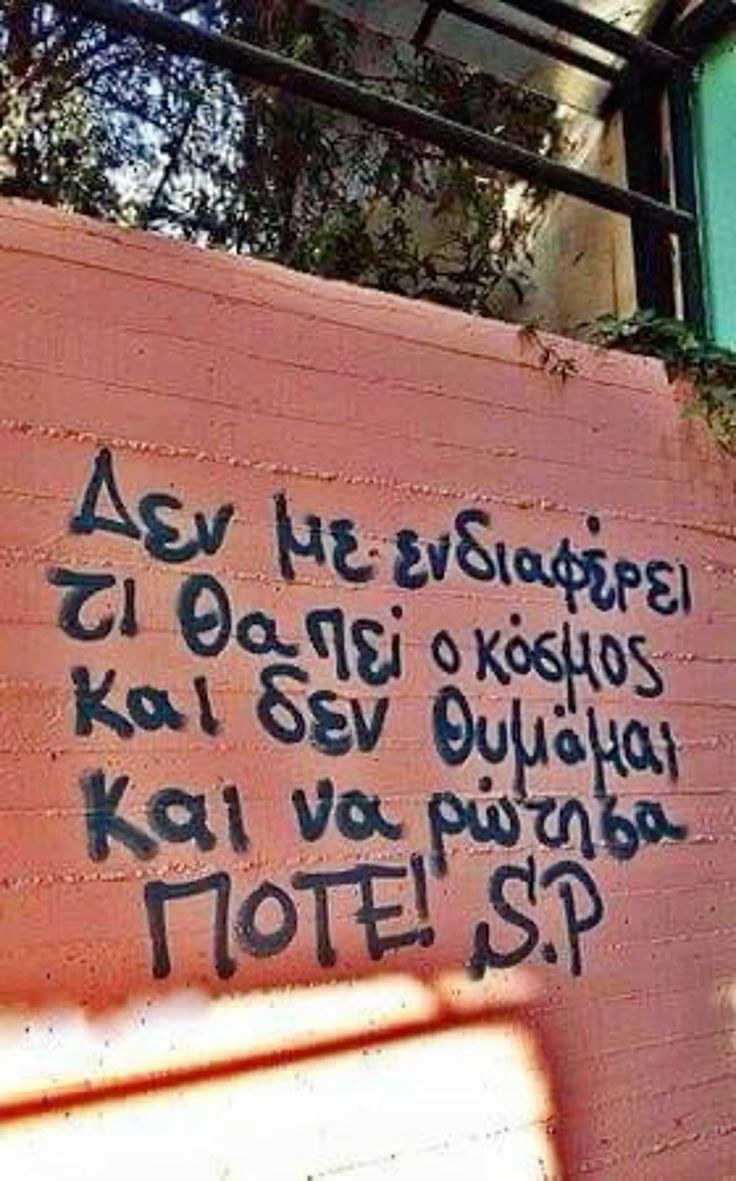 Δεν με ενδιαφέρει
τι θα πει ο κόσμος
και δεν θυμάμαι
και να ρώτησα
ΠΟΤΕ! S.P